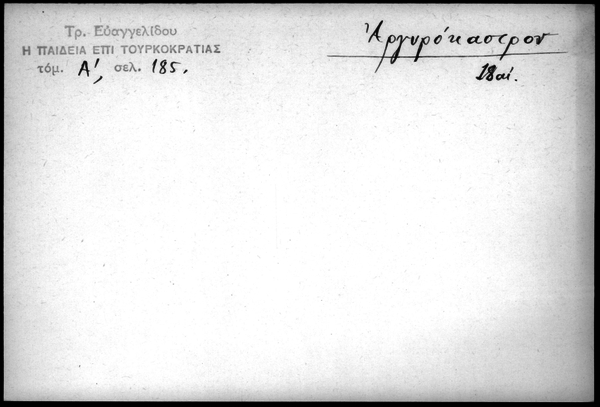 Τρ. Εὐαγγελίδου
Η ΠΑΙΔΕΙΑ ΕΠΙ ΤΟΥΡΚΟΚΡΑΤΙΑΣ
τόμ. Α', σελ. 185.
Ἀργυρόκαστρον
18 αἰ.